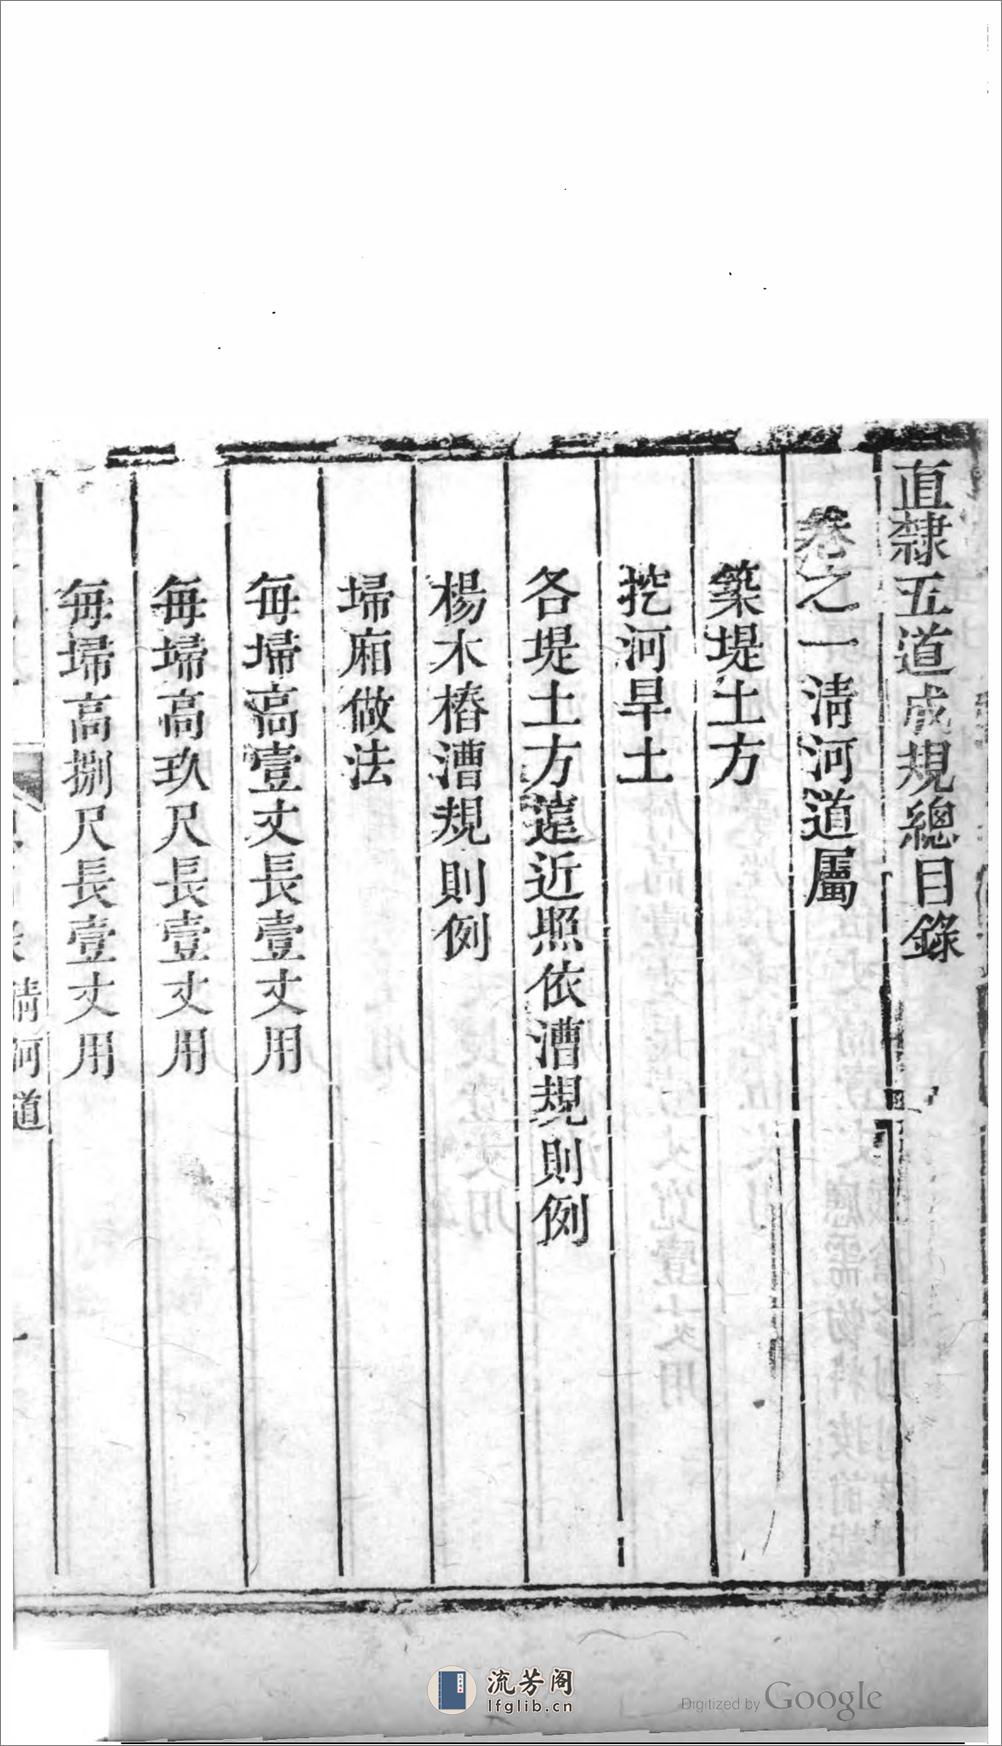 直隸五道成規總目錄
卷之一清河道屬
築堤土方
挖河旱土
各堤土方遠近照依漕規則例
楊木樁漕規則例
埽廂做法
每埽高壹丈長壹丈用
每埽高玖尺長壹丈用
每埽高捌尺長壹丈用
清河道
流芳阁
lfglib.cn
Digitized by Google